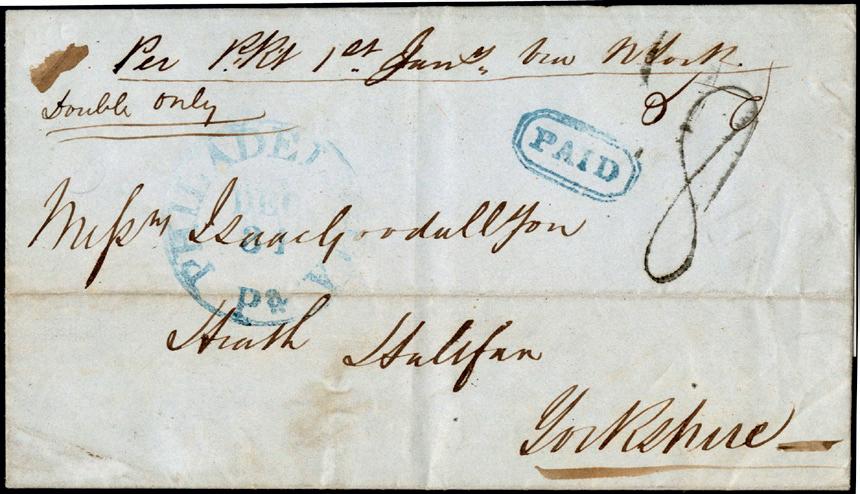 Per P.Kt 1st Jany. Via NYork.
Double only
PAID
8
PHILADELPHIA
DEC
31
Pa
Messrs Isaac Goodall & Son
Heath Halifax
Yorkshire